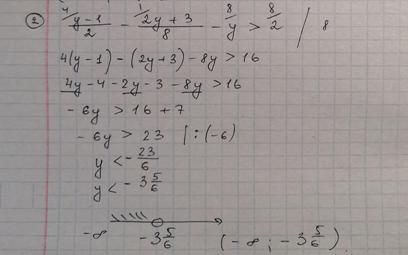 ② ⁴/ y-1/2 - ¹/ 2y+3/8 - ⁸/ y > ⁸/ 2 / 8
4(y-1) - (2y+3) - 8y > 16
4y - 4 - 2y - 3 - 8y > 16
- 6y > 16 + 7
- 6y > 23 | : (-6)
y < - 23/6
y < - 3 5/6
-∞ -3 5/6 (-∞ ; -3 5/6)